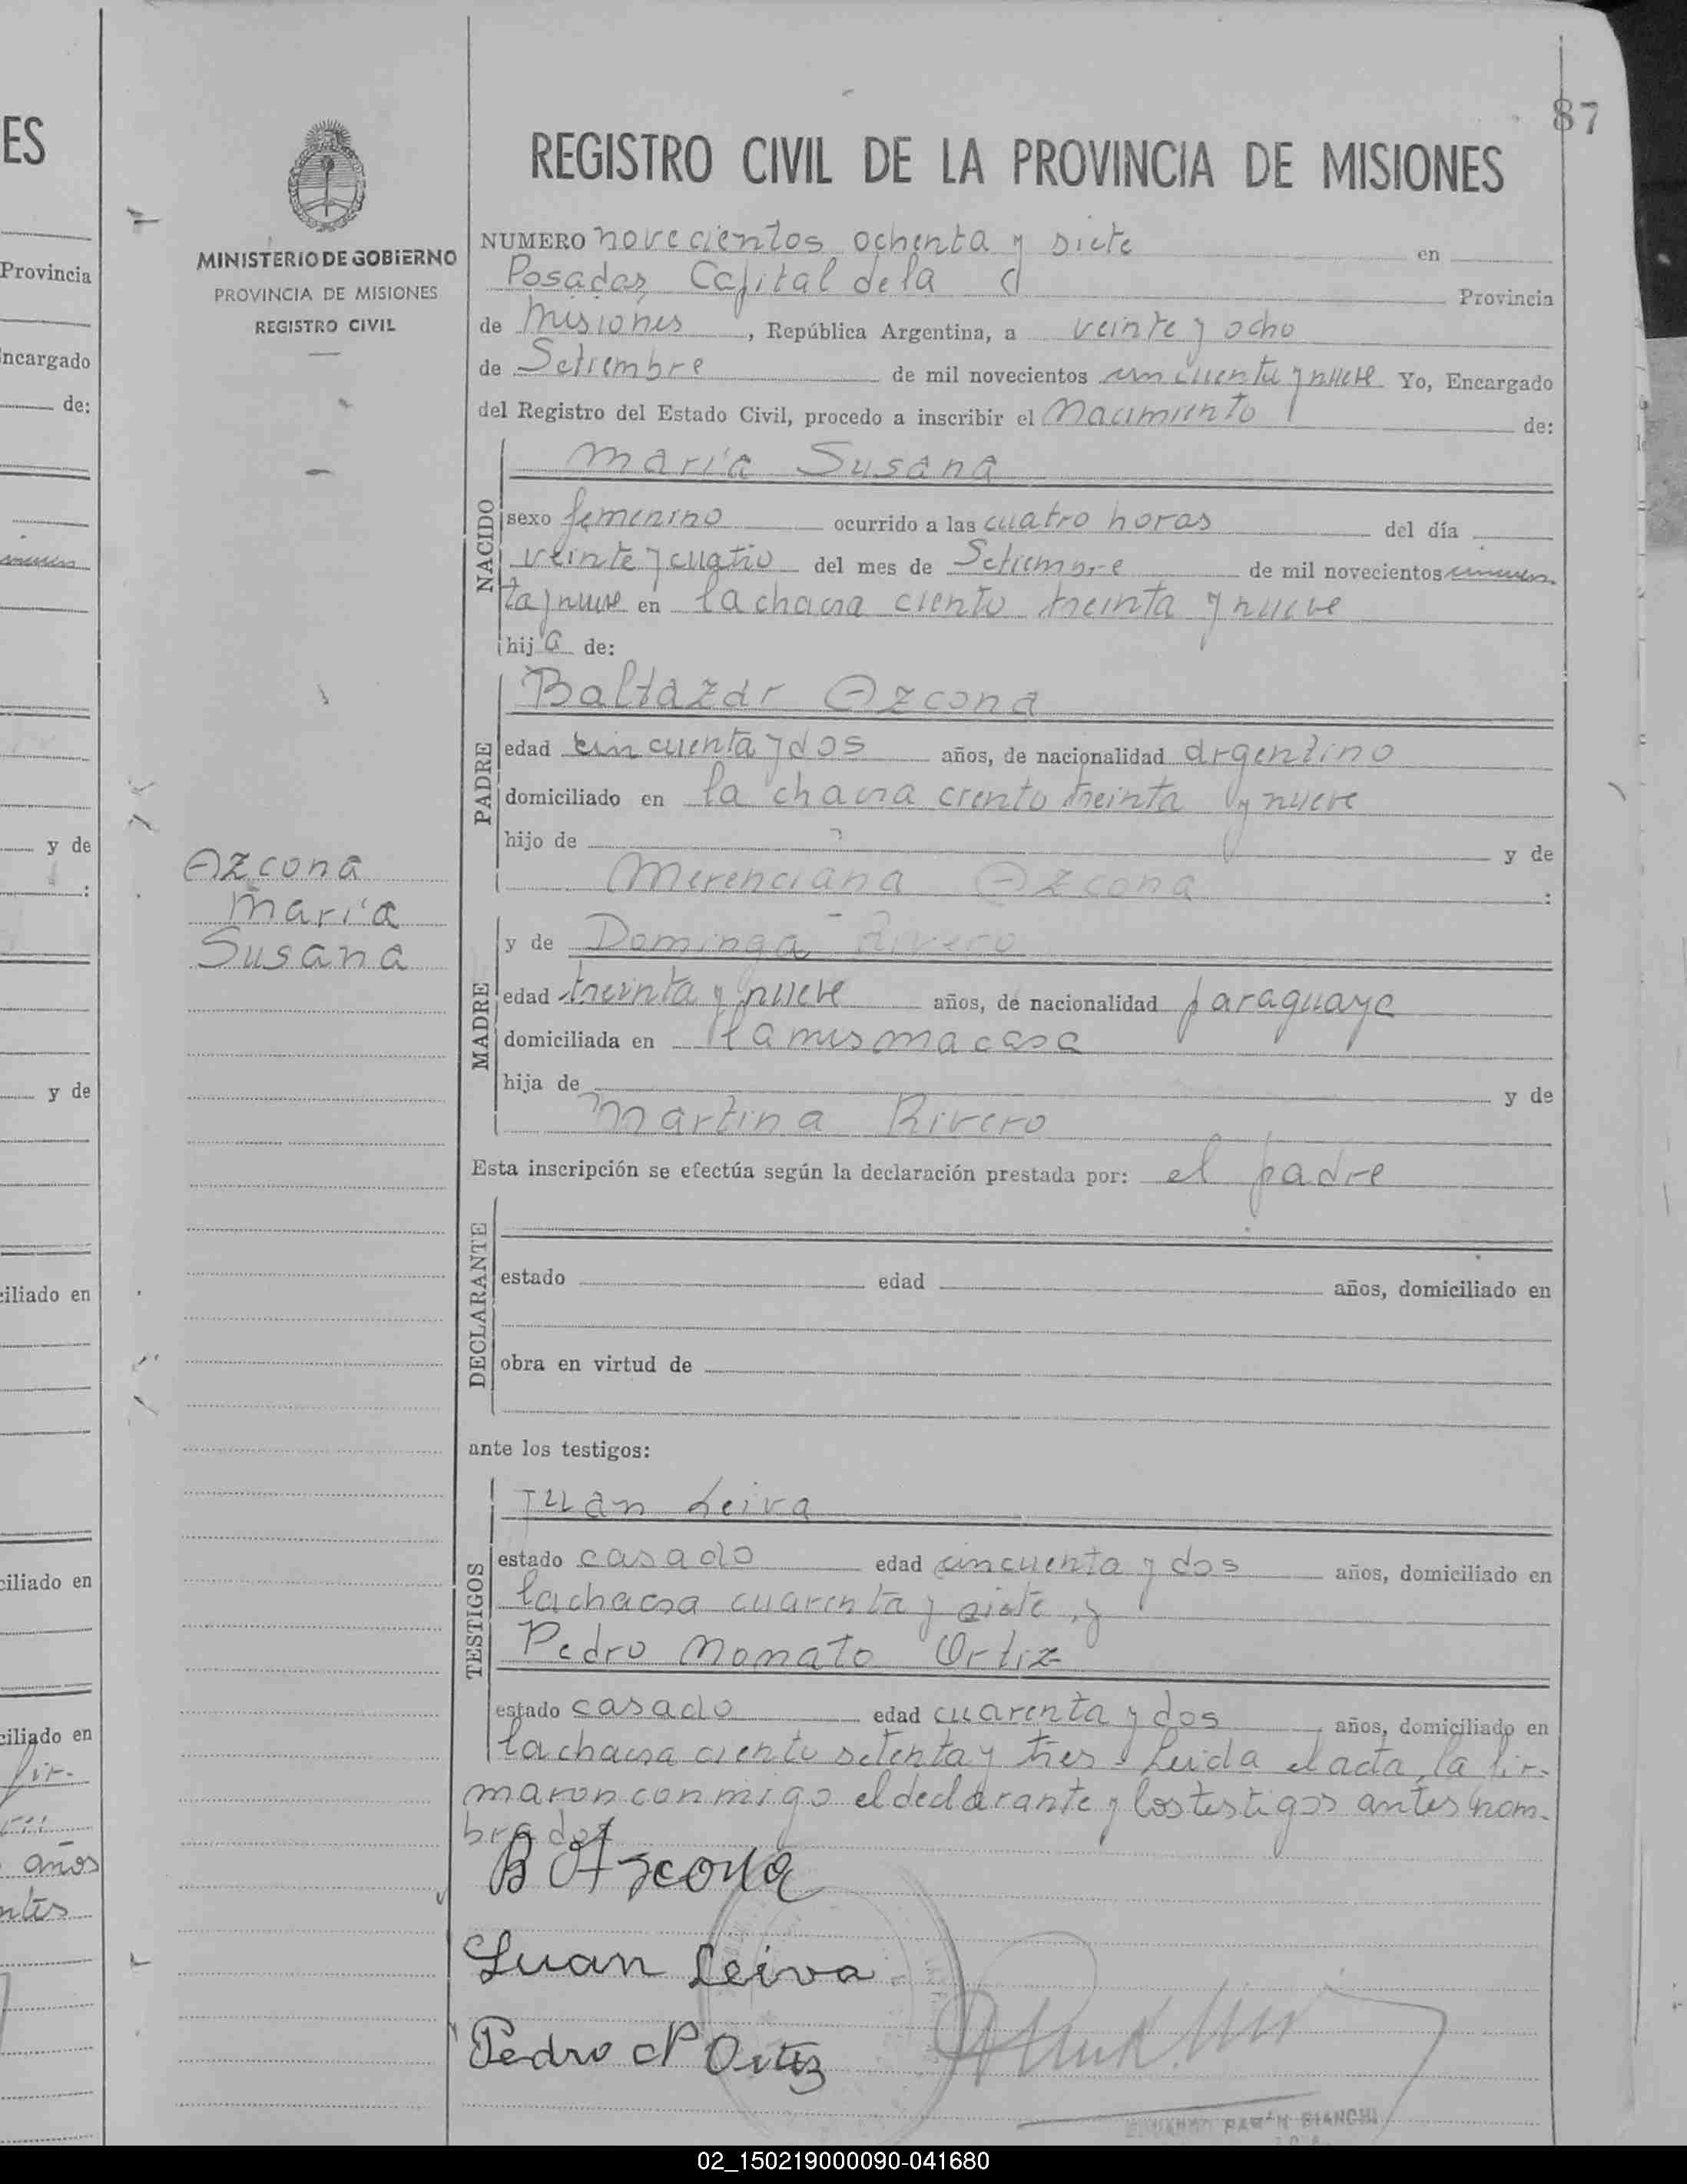 87
ES
Provincia
ncargado
de:
y de
:
y de
ciliado en
ciliado en
ciliado en
fir-
años
ntes
MINISTERIO DE GOBIERNO
PROVINCIA DE MISIONES
REGISTRO CIVIL
Azcona
María
Susana
REGISTRO CIVIL DE LA PROVINCIA DE MISIONES
NUMERO novecientos ochenta y siete en
Posadas, Capital de la Provincia
de Misiones, República Argentina, a veinte y ocho
de Setiembre de mil novecientos cincuenta y nueve Yo, Encargado
del Registro del Estado Civil, procedo a inscribir el Nacimiento de:
NACIDO
María Susana
sexo femenino ocurrido a las cuatro horas del día
veinte y cuatro del mes de Setiembre de mil novecientos cincuen-
ta y nueve en la chacra ciento treinta y nueve
hija de:
PADRE
Baltazar Azcona
edad cincuenta y dos años, de nacionalidad argentino
domiciliado en la chacra ciento treinta y nueve
hijo de y de
Merenciana Azcona :
MADRE
y de Dominga Rivero
edad treinta y nueve años, de nacionalidad paraguaya
domiciliada en la misma casa
hija de y de
Martina Rivero
Esta inscripción se efectúa según la declaración prestada por: el padre
DECLARANTE
estado edad años, domiciliado en
obra en virtud de
ante los testigos:
TESTIGOS
Juan Leiva
estado casado edad cincuenta y dos años, domiciliado en
la chacra cuarenta y siete, y
Pedro Nonato Ortiz
estado casado edad cuarenta y dos años, domiciliado en
la chacra ciento setenta y tres. Leida el acta, la fir-
maron conmigo el declarante y los testigos antes nom-
brados
B Azcona
Juan Leiva
Pedro N Ortiz
EDUARDO RAMÓN BIANCHI
02_150219000090-041680